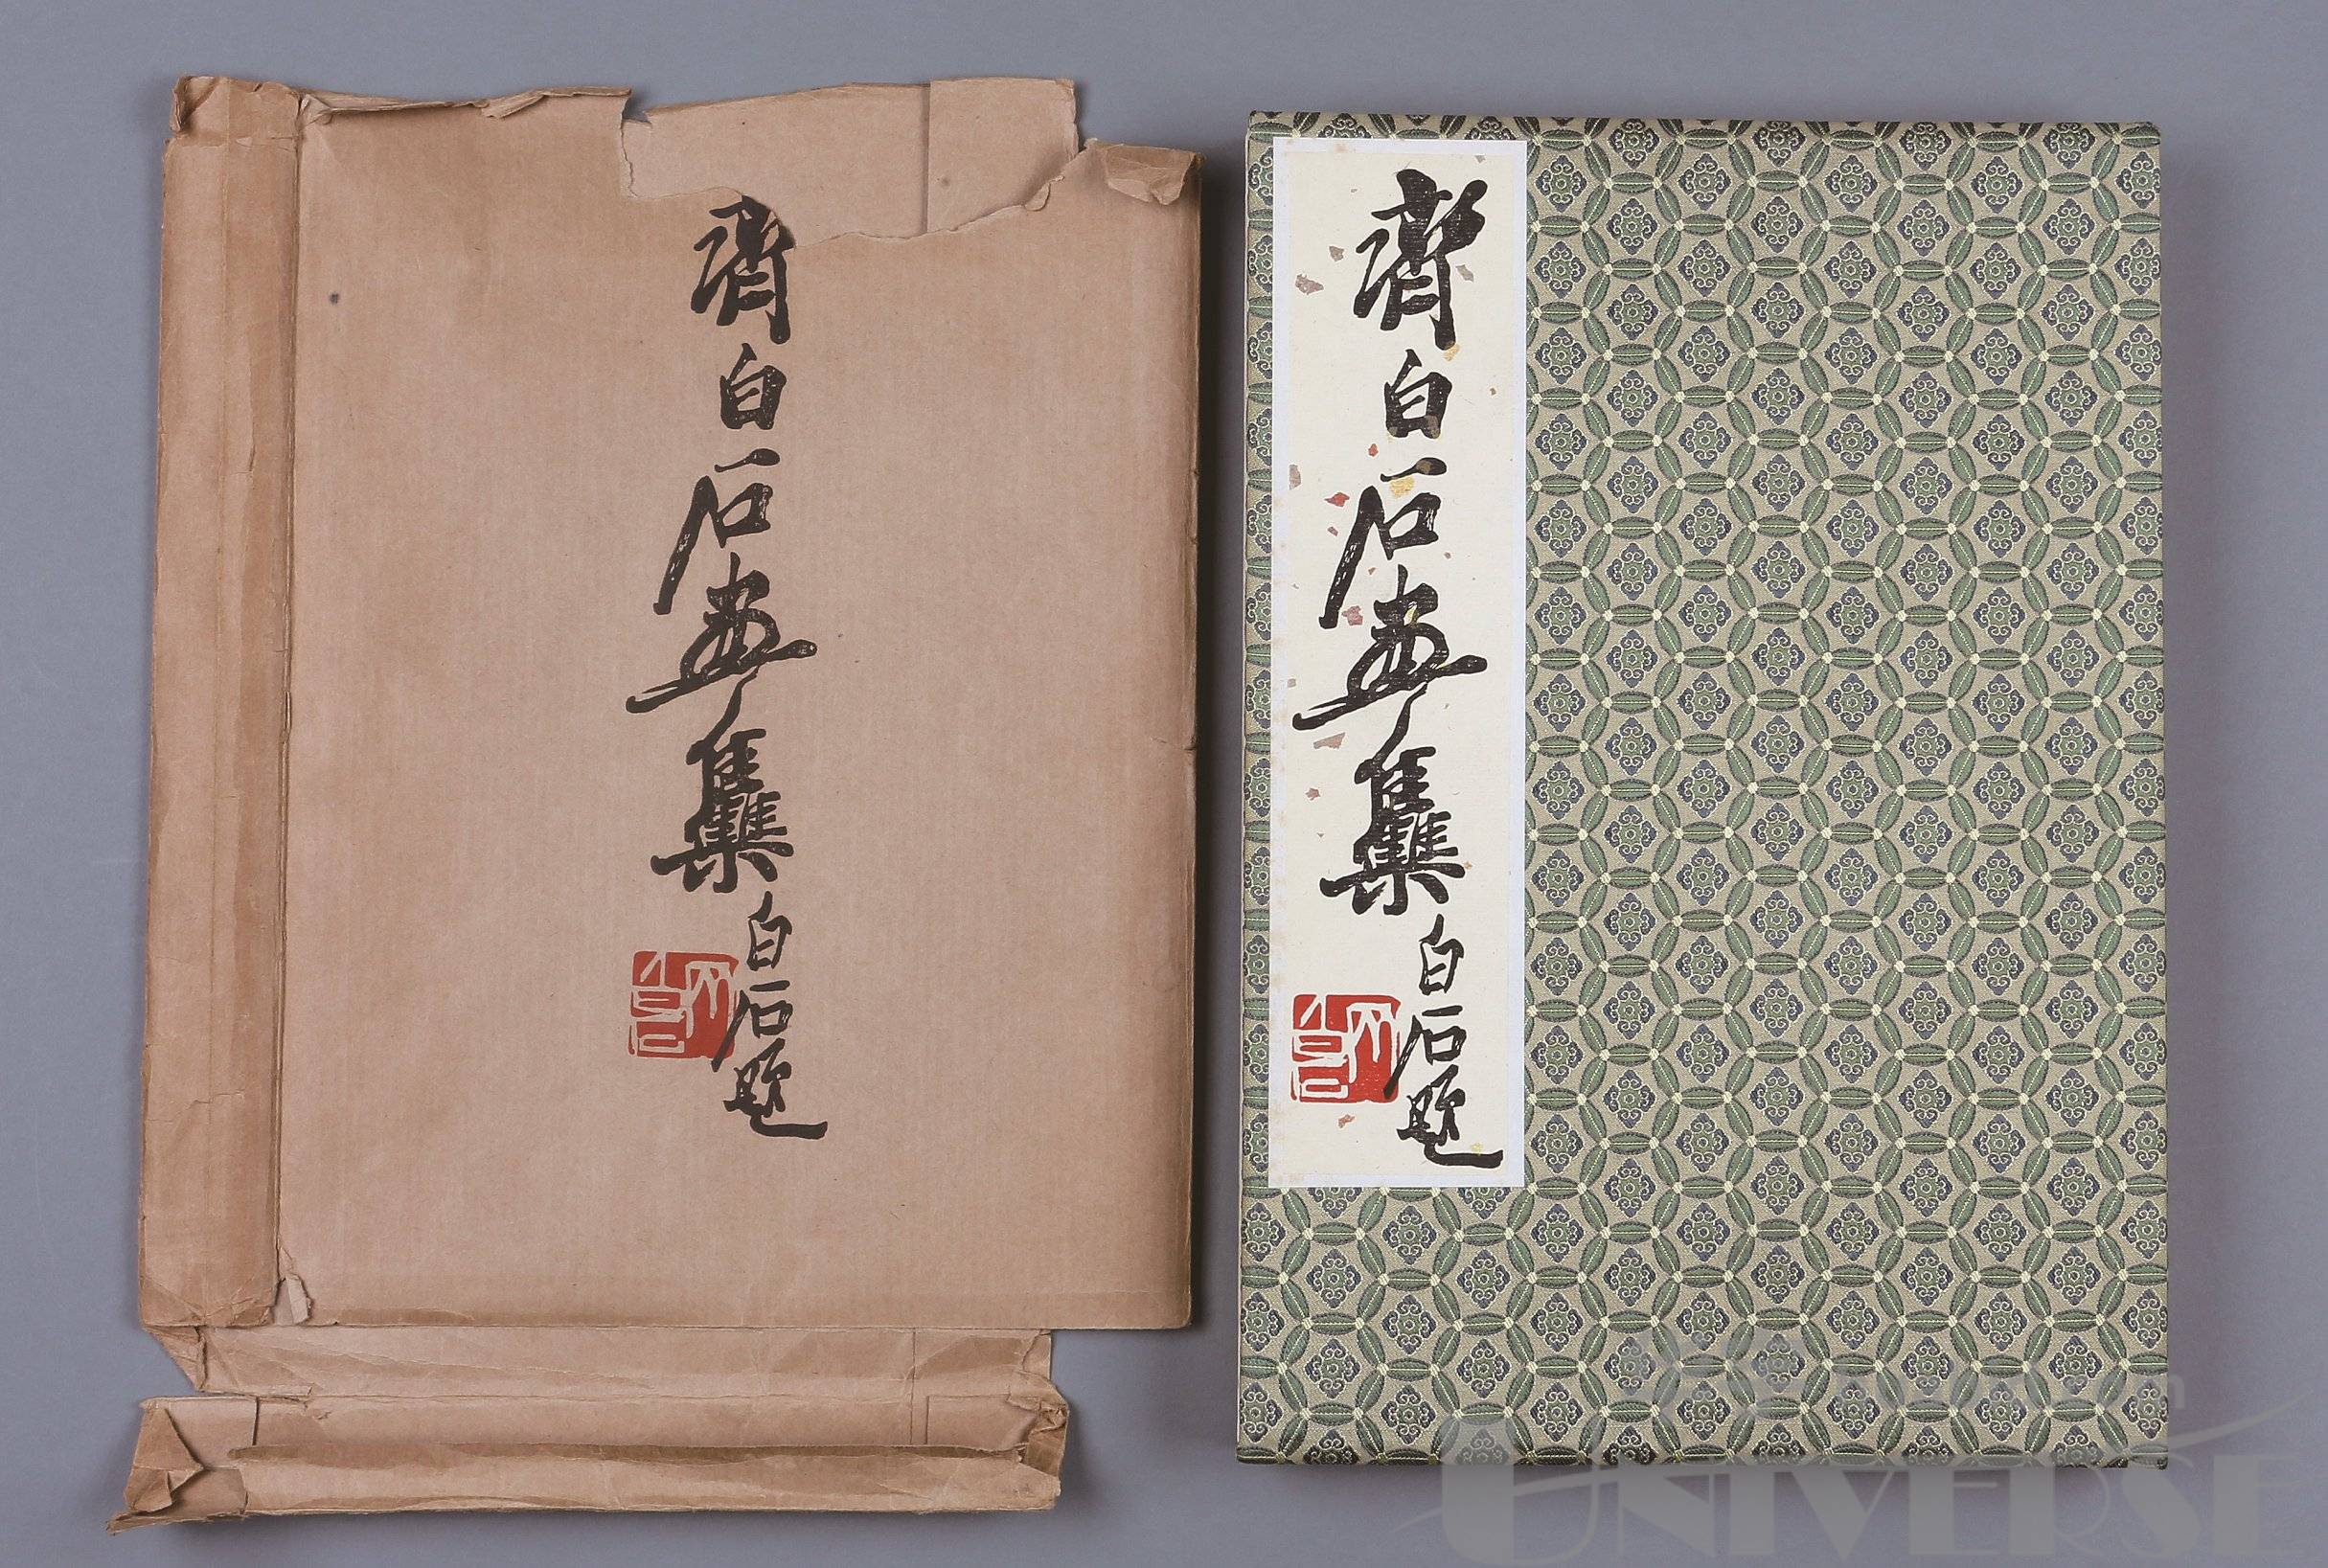 齊白石画集
白石題
齊白石画集
白石題
UNIVERSE